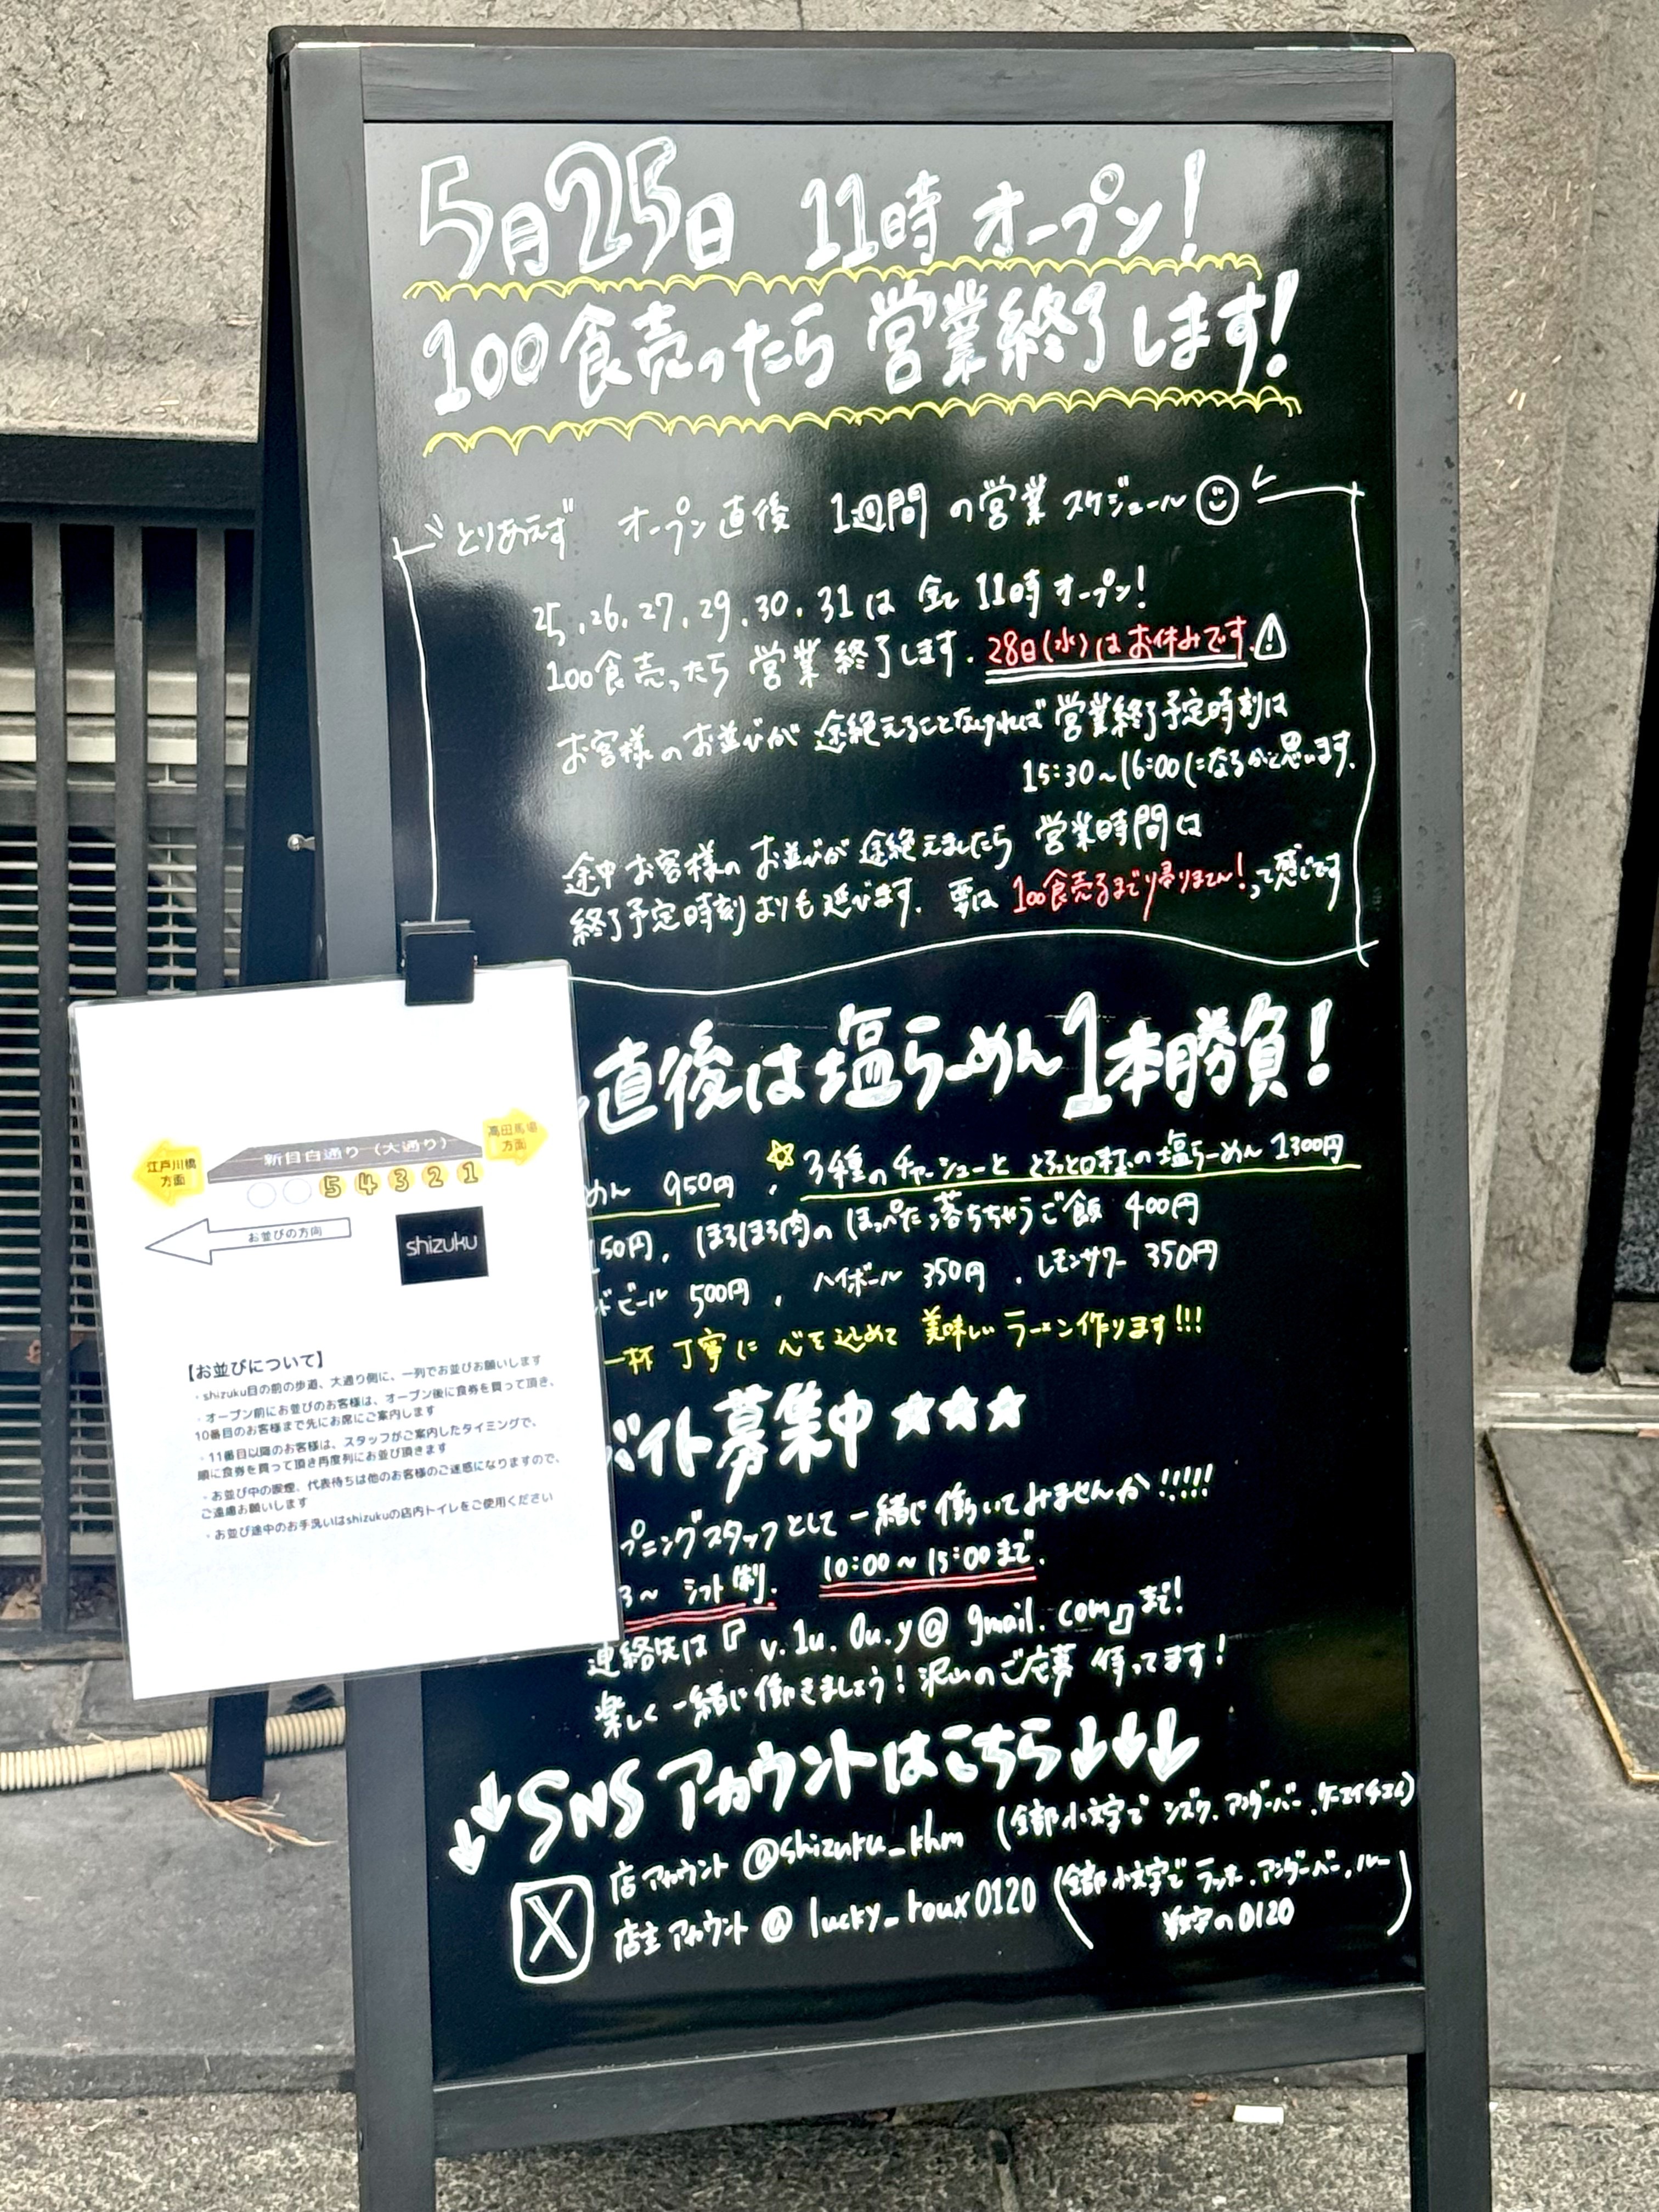 5月25日 11時オープン!
100食売ったら営業終了します!
とりあえず オープン直後 1週間の営業スケジュール
25,26,27,29,30,31は 全て 11時オープン!
100食売ったら 営業終了します. 28日(水)はお休みです
お客様のお並びが 途絶えることなければ 営業終了予定時刻は
15:30~16:00になるかと思います.
途中お客様のお並びが 途絶えましたら 営業時間は
終了予定時刻よりも延びます. 要は 100食売るまでり帰りません!って感じです
直後は塩らーめん1本勝負!
めん 950円, ☆3種のチャーシューと とろっと味玉の塩らーめん 1300円
150円, ほろほろ肉の ほっぺた落ちちゃうご飯 400円
ドビール 500円, ハイボール 350円, レモンサワー 350円
一杯 丁寧に 心を込めて 美味しいラーメン作ります!!!
バイト募集中 ★★★
プニングスタッフとして 一緒に働いてみませんか!!!!!
3~ シフト制. 10:00~15:00まで.
連絡先は『v.1u.0u.y@gmail.com』まで!
楽しく一緒に働きましょう! 沢山のご応募 待ってます!
↓↓SNSアカウントはこちら↓↓↓
X 店アカウント @shizuku_khm (全部小文字で シズク.アンダーバー.ケーエイチエム)
店主アカウント @lucky_roux0120 (全部小文字で ラッキー.アンダーバー.ルー
数字の0120)
江戸川橋
方面
新目白通り(大通り)
高田馬場
方面
5 4 3 2 1
お並びの方向
shizuku
【お並びについて】
・shizuku目の前の歩道、大通り側に、一列でお並びお願いします
・オープン前にお並びのお客様は、オープン後に食券を買って頂き、
10番目のお客様まで先にお席にご案内します
・11番目以降のお客様は、スタッフがご案内したタイミングで、
順に食券を買って頂き再度列にお並び頂きます
・お並び中の喫煙、代表待ちは他のお客様のご迷惑になりますので、
ご遠慮お願いします
・お並び途中のお手洗いはshizukuの店内トイレをご使用ください